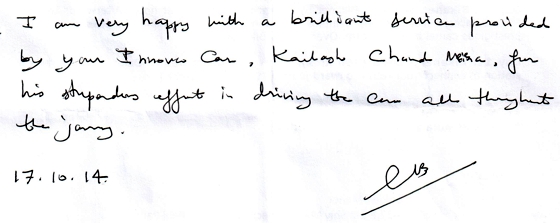 I am very happy with a brilliant service provided
by your Innova Car, Kailash Chand Meena, for
his stupendous effort in driving the car all throughout
the journey.
17.10.14.